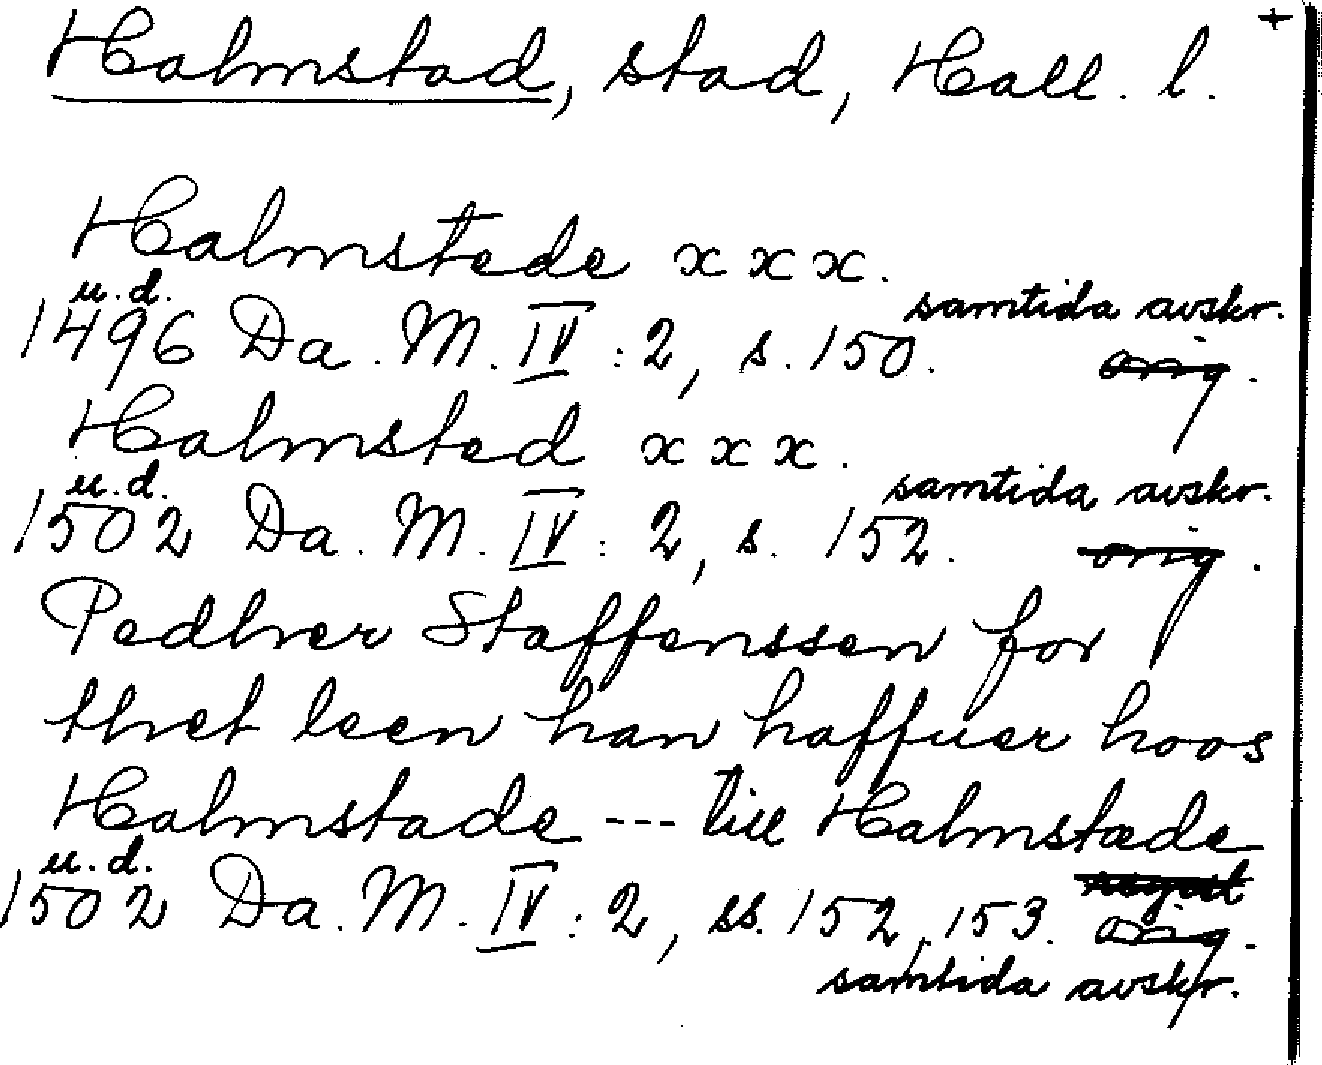 +
Halmstad, stad, Hall. l.
Halmstede x x x.
u.d. samtida avskr.
1496 Da. M. IV : 2, s. 150. orig.
Halmsted x x x.
u.d. samtida avskr.
1502 Da. M. IV : 2, s. 152. orig.
Pedher Staffenssen for
thet leen han haffuer hoos
Halmstade --- till Halmstede
u.d.
1502 Da. M. IV : 2, ss. 152, 153. orig.
samtida avskr.